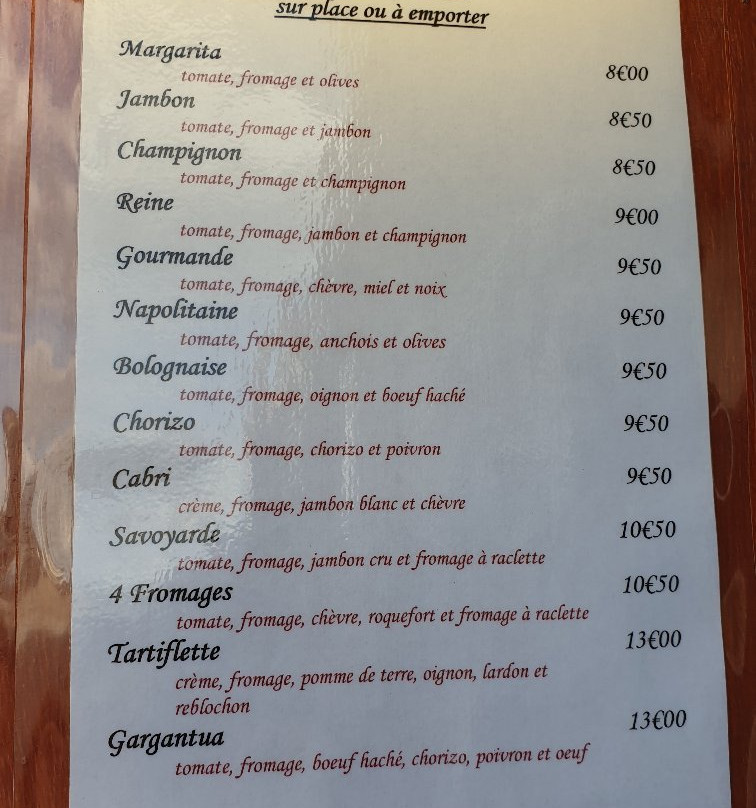 sur place ou à emporter
Margarita
tomate, fromage et olives 8€00
Jambon
tomate, fromage et jambon 8€50
Champignon
tomate, fromage et champignon 8€50
Reine
tomate, fromage, jambon et champignon 9€00
Gourmande
tomate, fromage, chèvre, miel et noix 9€50
Napolitaine
tomate, fromage, anchois et olives 9€50
Bolognaise
tomate, fromage, oignon et boeuf haché 9€50
Chorizo
tomate, fromage, chorizo et poivron 9€50
Cabri
crème, fromage, jambon blanc et chèvre 9€50
Savoyarde
tomate, fromage, jambon cru et fromage à raclette 10€50
4 Fromages
tomate, fromage, chèvre, roquefort et fromage à raclette 10€50
Tartiflette 13€00
crème, fromage, pomme de terre, oignon, lardon et
reblochon
Gargantua 13€00
tomate, fromage, boeuf haché, chorizo, poivron et oeuf